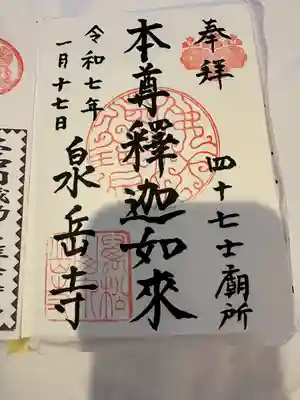 奉拝
四十七士廟所
本尊釋迦如來
令和七年
一月十七日
泉岳寺